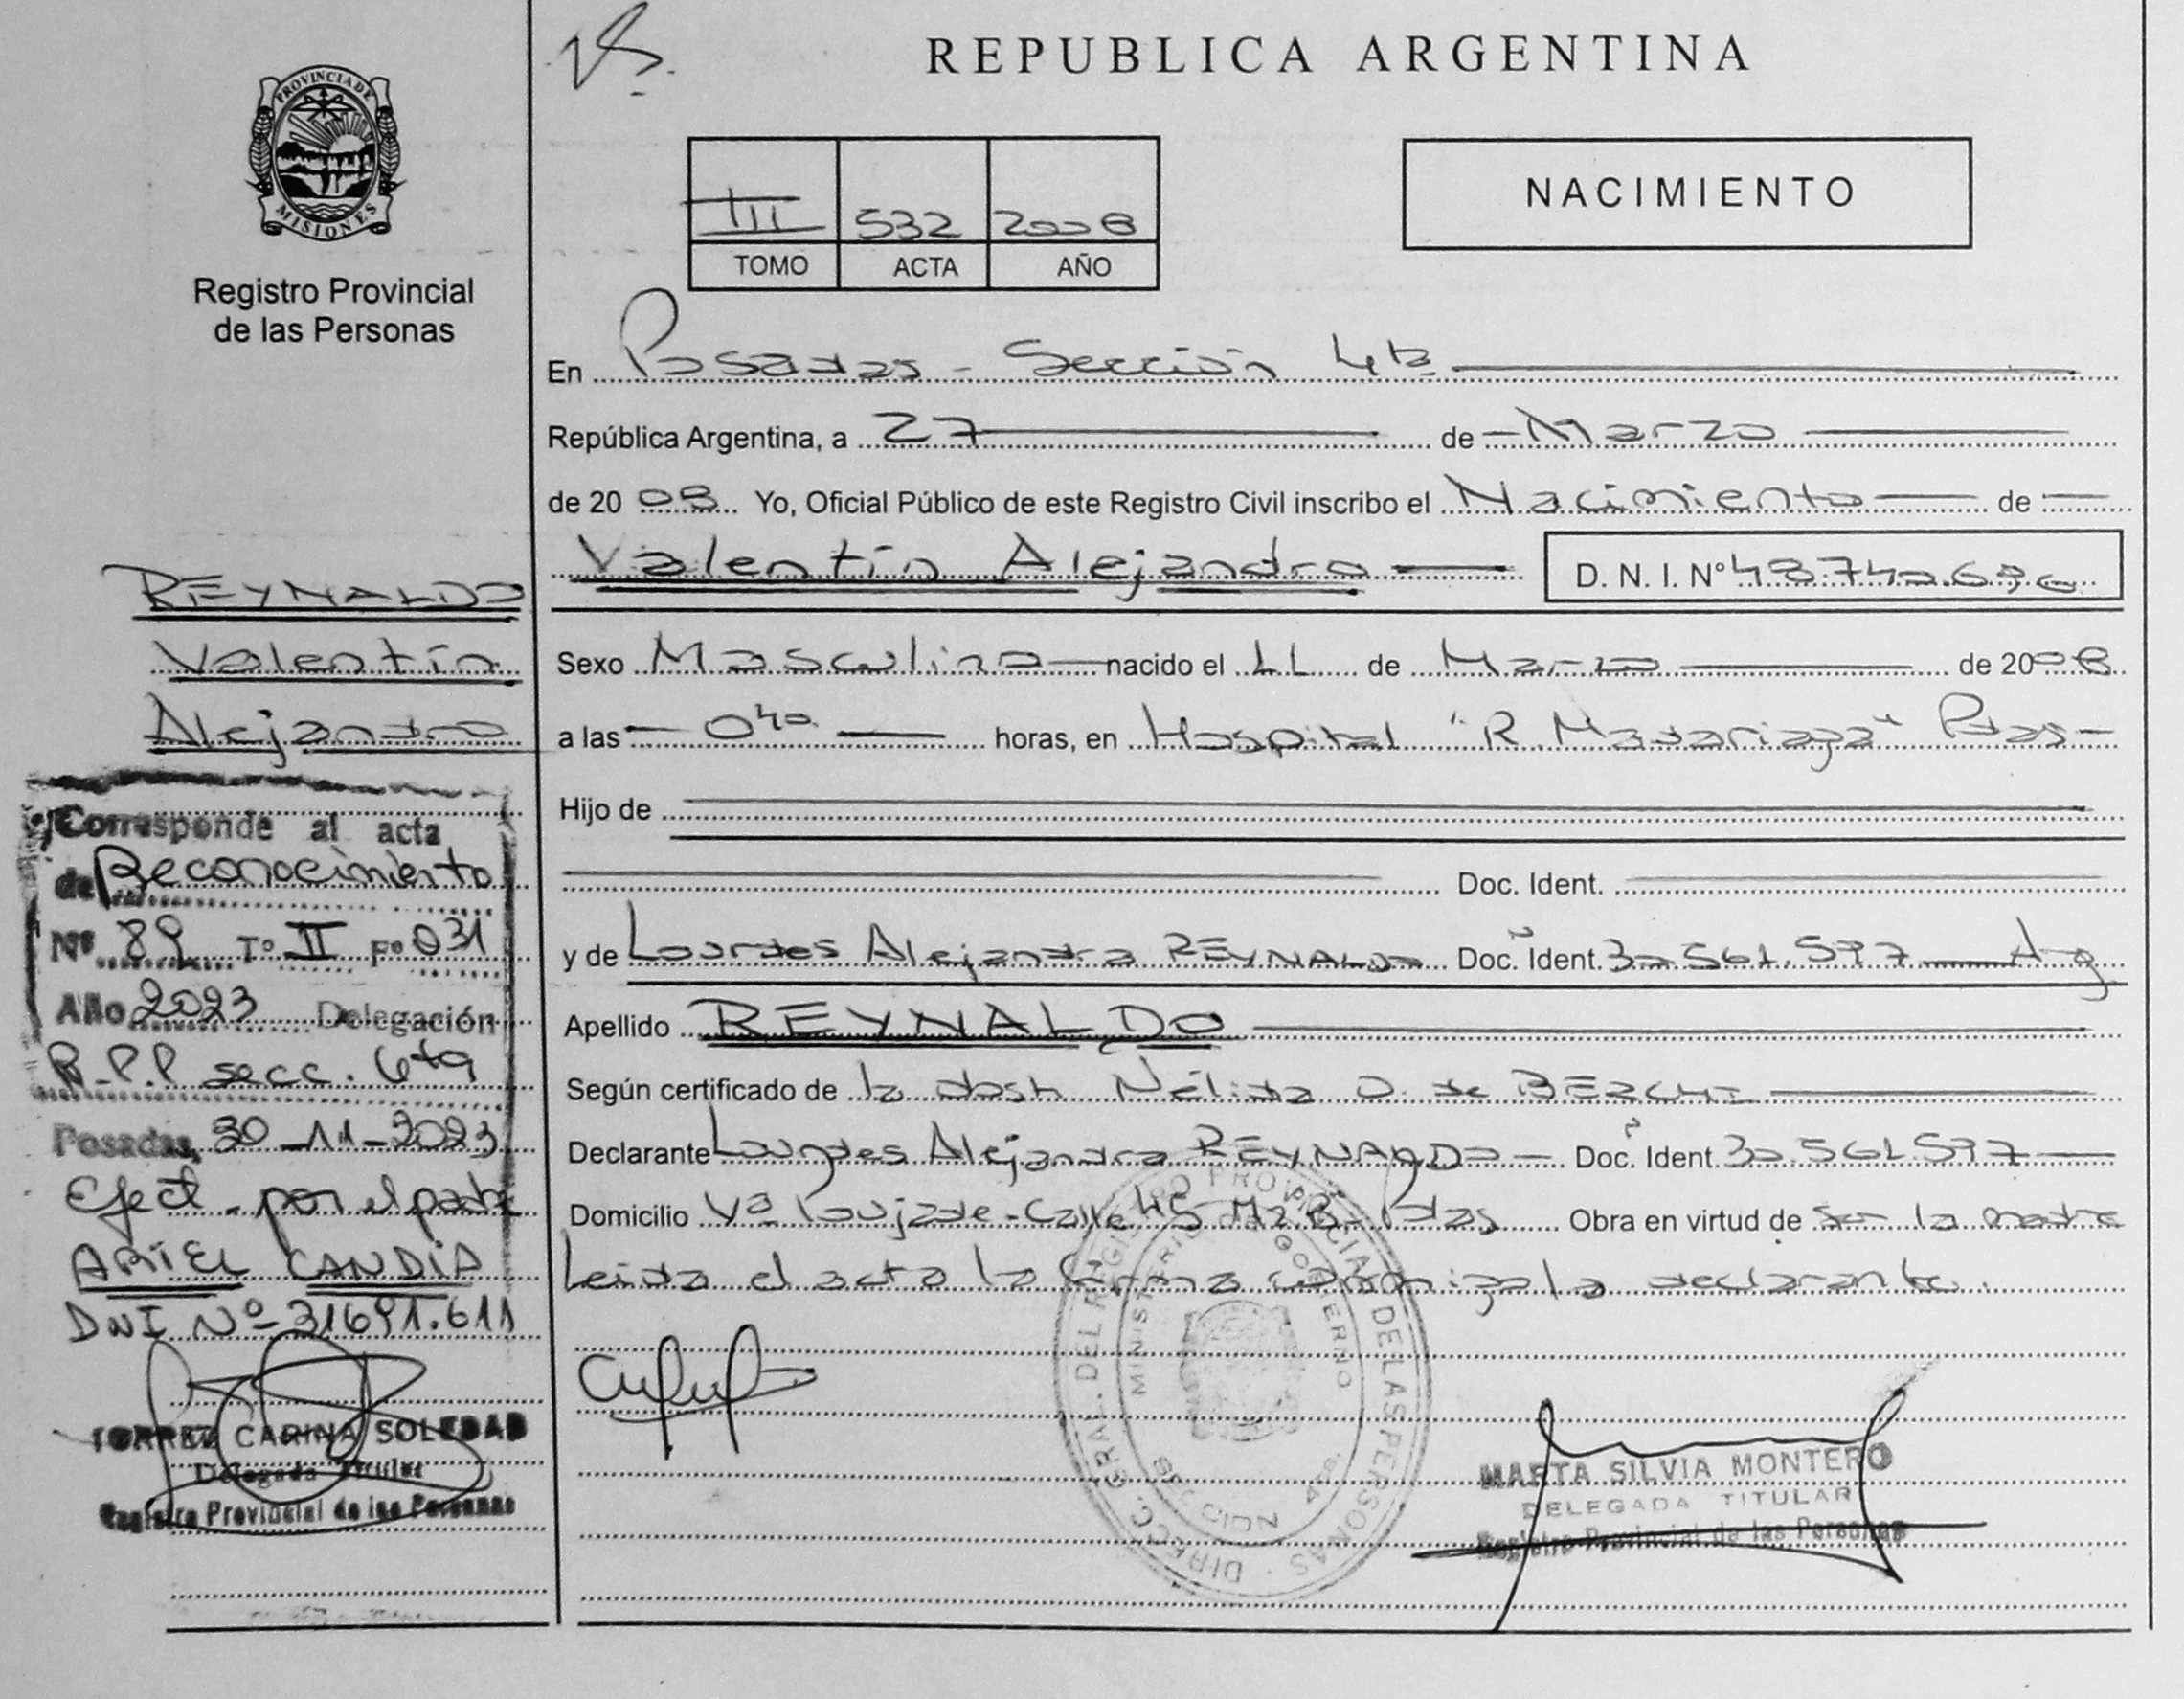 REPUBLICA ARGENTINA
PROVINCIA DE MISIONES
Registro Provincial
de las Personas
III 532 2008
TOMO ACTA AÑO
NACIMIENTO
En Posadas - Sección 4ta
República Argentina, a 27 de Marzo
de 2008 Yo, Oficial Público de este Registro Civil inscribo el Nacimiento de
Valentín Alejandro D. N. I. Nº
Sexo Masculino nacido el 11 de Marzo de 2008
a las 0⁴⁰ horas, en Hospital "R. Madariaga" Pdas
Hijo de
Doc. Ident.
y de Lourdes Alejandra REYNALDO Doc. Ident. 30.561.597 Arg
Apellido REYNALDO
Según certificado de la obst. Nélida O. de
Declarante Lourdes Alejandra REYNALDO Doc. Ident. 30.561.597
Domicilio Calle 45 Pdas Obra en virtud de ser la madre
Leída el acta la firma conmigo la declarante.
DIRECC. GRAL. DEL REGISTRO PROVINCIAL DE LAS PERSONAS
MINISTERIO DE GOBIERNO
MISIONES
MARTA SILVIA MONTERO
DELEGADA TITULAR
Registro Provincial de las Personas
REYNALDO
Valentín
Alejandro
Corresponde al acta
de Reconocimiento
Nº 89 Tº II Fº 031
Año 2023 Delegación
R.P.P secc. 6ta
Posadas, 30-11-2023
Efect. por el padre
ARIEL CANDIA
DNI Nº 31691.611
TORREZ CARINA SOLEDAD
Delegada Titular
Registro Provincial de las Personas